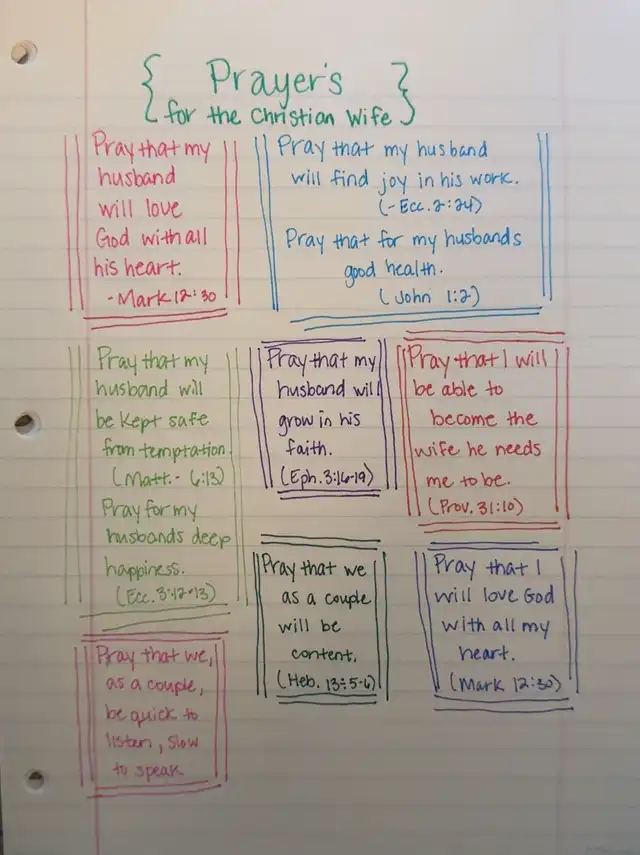 { Prayer's }
for the Christian Wife
Pray that my
husband
will love
God with all
his heart.
-Mark 12:30
Pray that my husband
will find joy in his work.
(-Ecc. 2:24)
Pray that for my husbands
good health.
(John 1:2)
Pray that my
husband will
be kept safe
from temptation.
(Matt.- 6:13)
Pray for my
husbands deep
happiness.
(Ecc. 3:12-13)
Pray that my
husband will
grow in his
faith.
(Eph. 3:16-19)
Pray that I will
be able to
become the
wife he needs
me to be.
(Prov. 31:10)
Pray that we
as a couple
will be
content.
(Heb. 13:5-6)
Pray that I
will love God
with all my
heart.
(Mark 12:30)
Pray that we,
as a couple,
be quick to
listen, slow
to speak